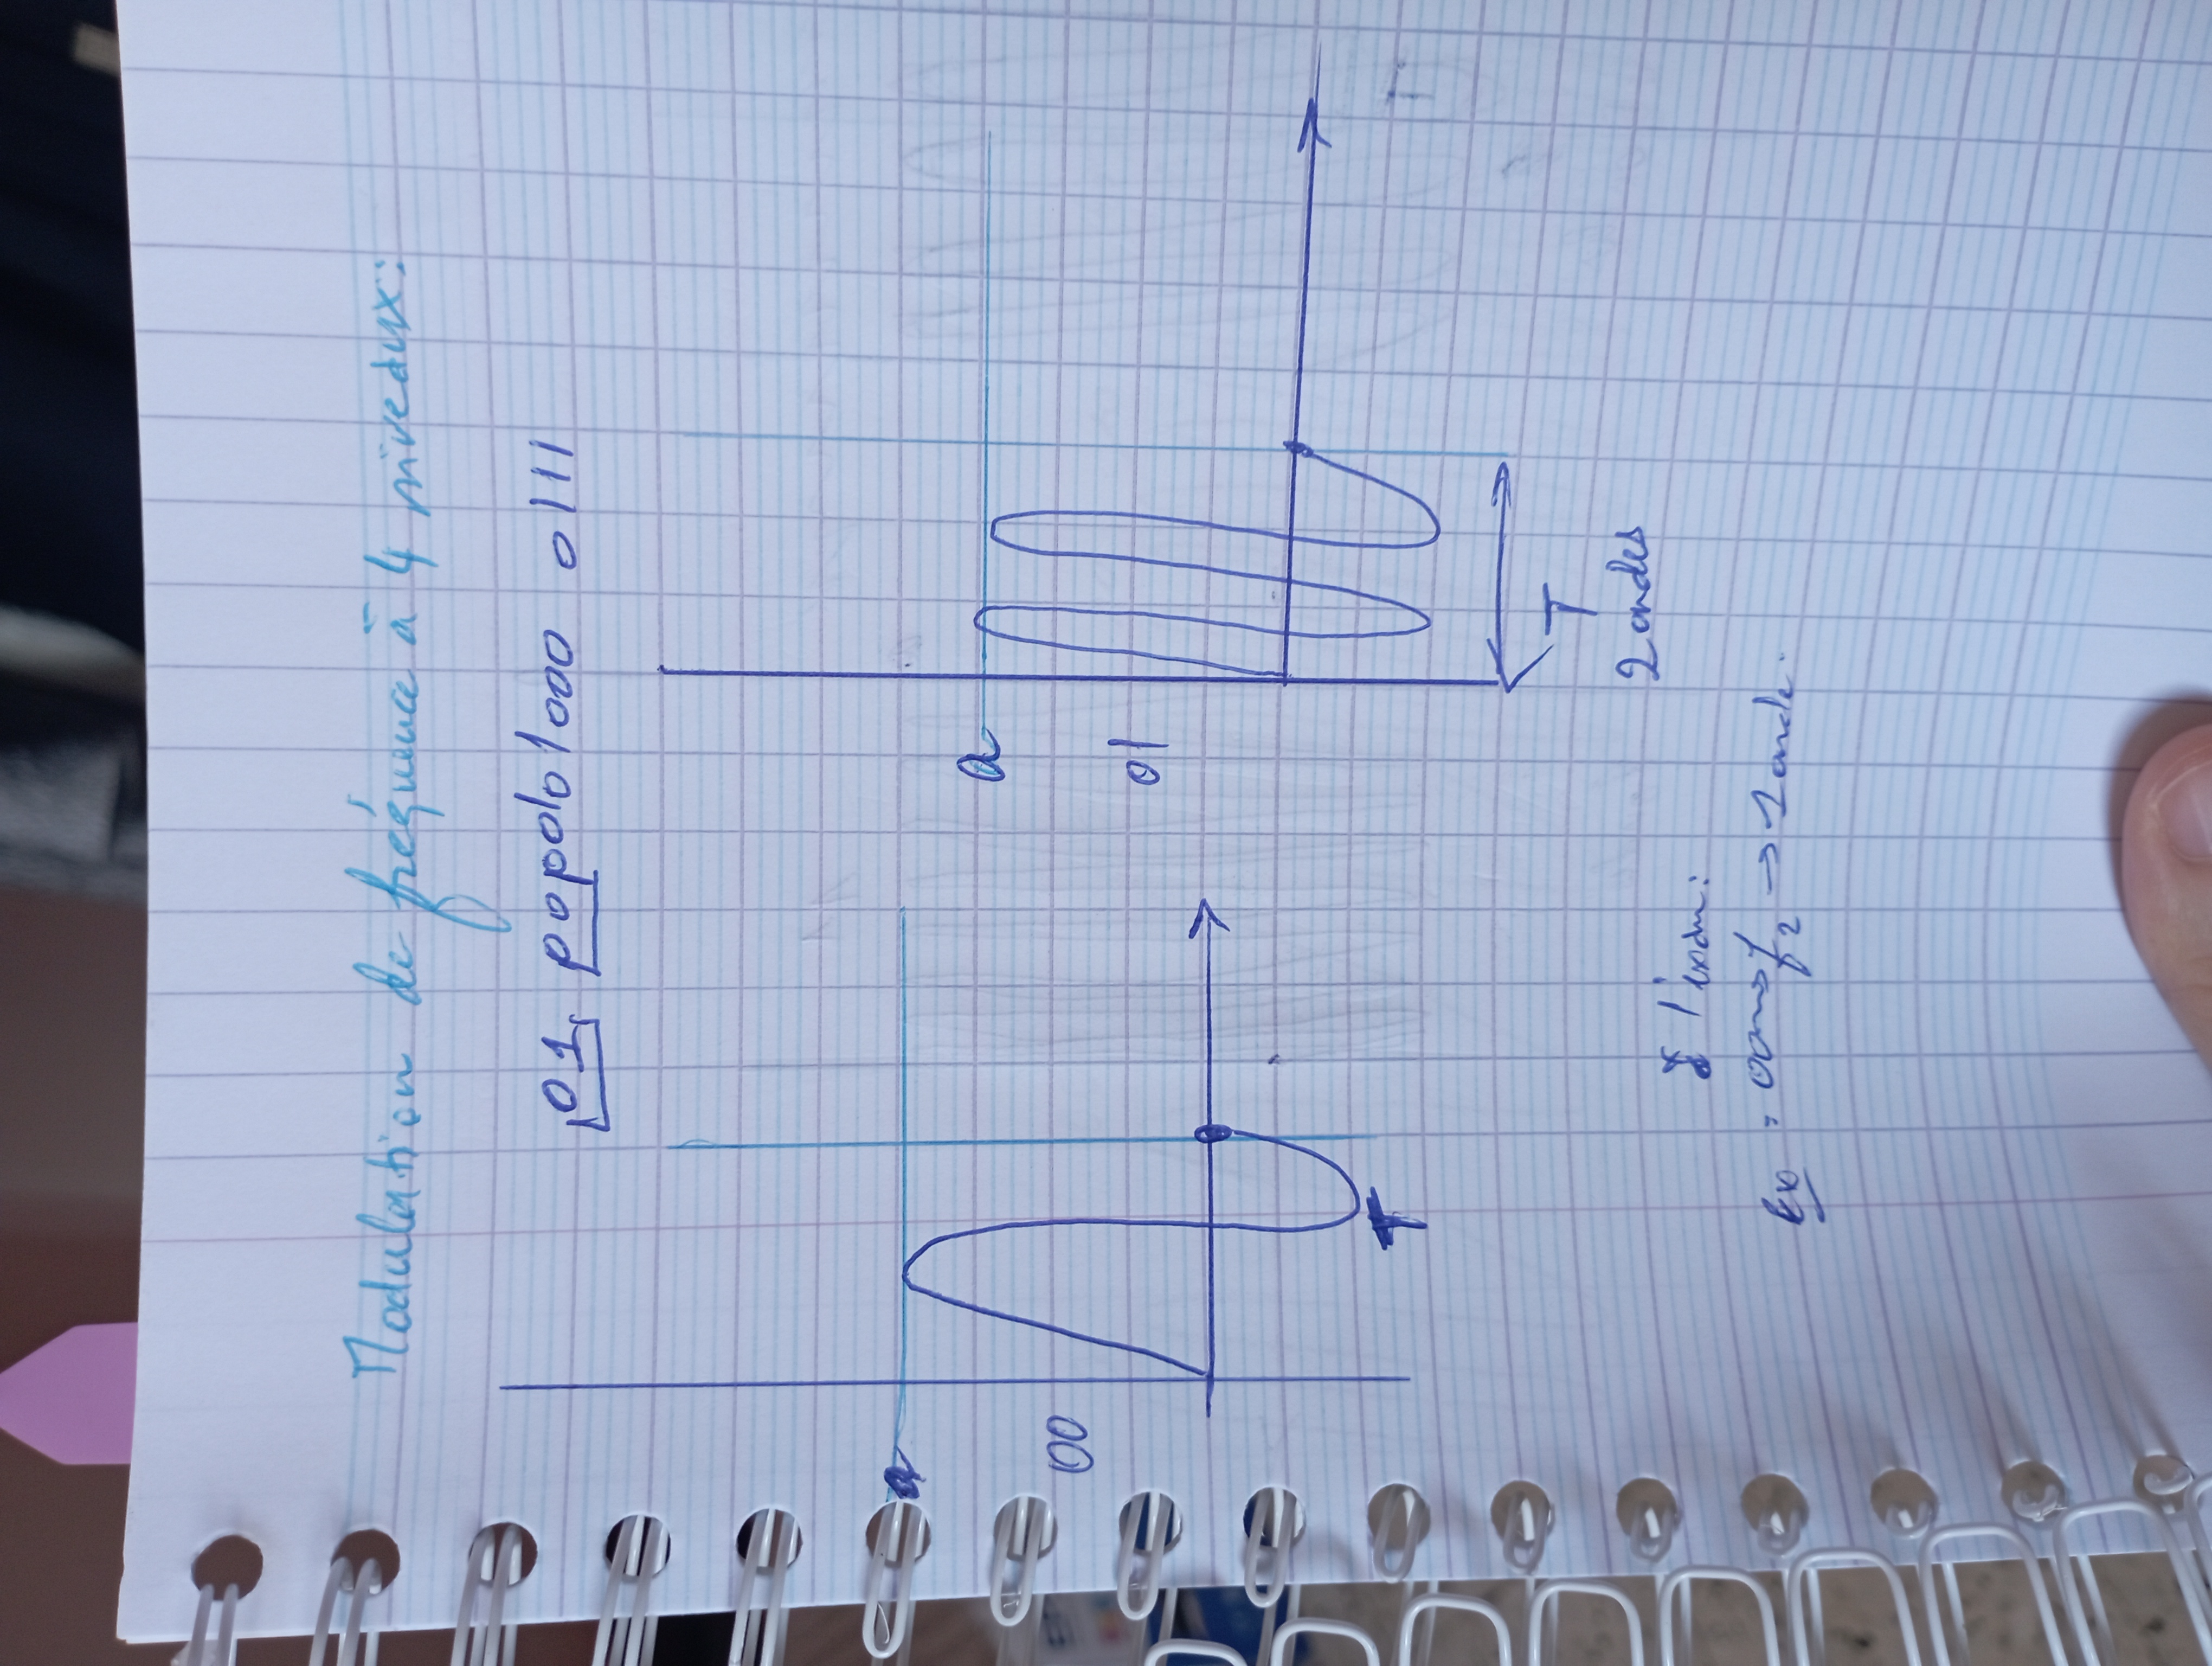 Modulation de fréquence à 4 niveaux:
01 0000101000 0111
a
00
T
a
01
T
2 ondes
à l'exam:
Ex : 00 → f2 → 1 onde.